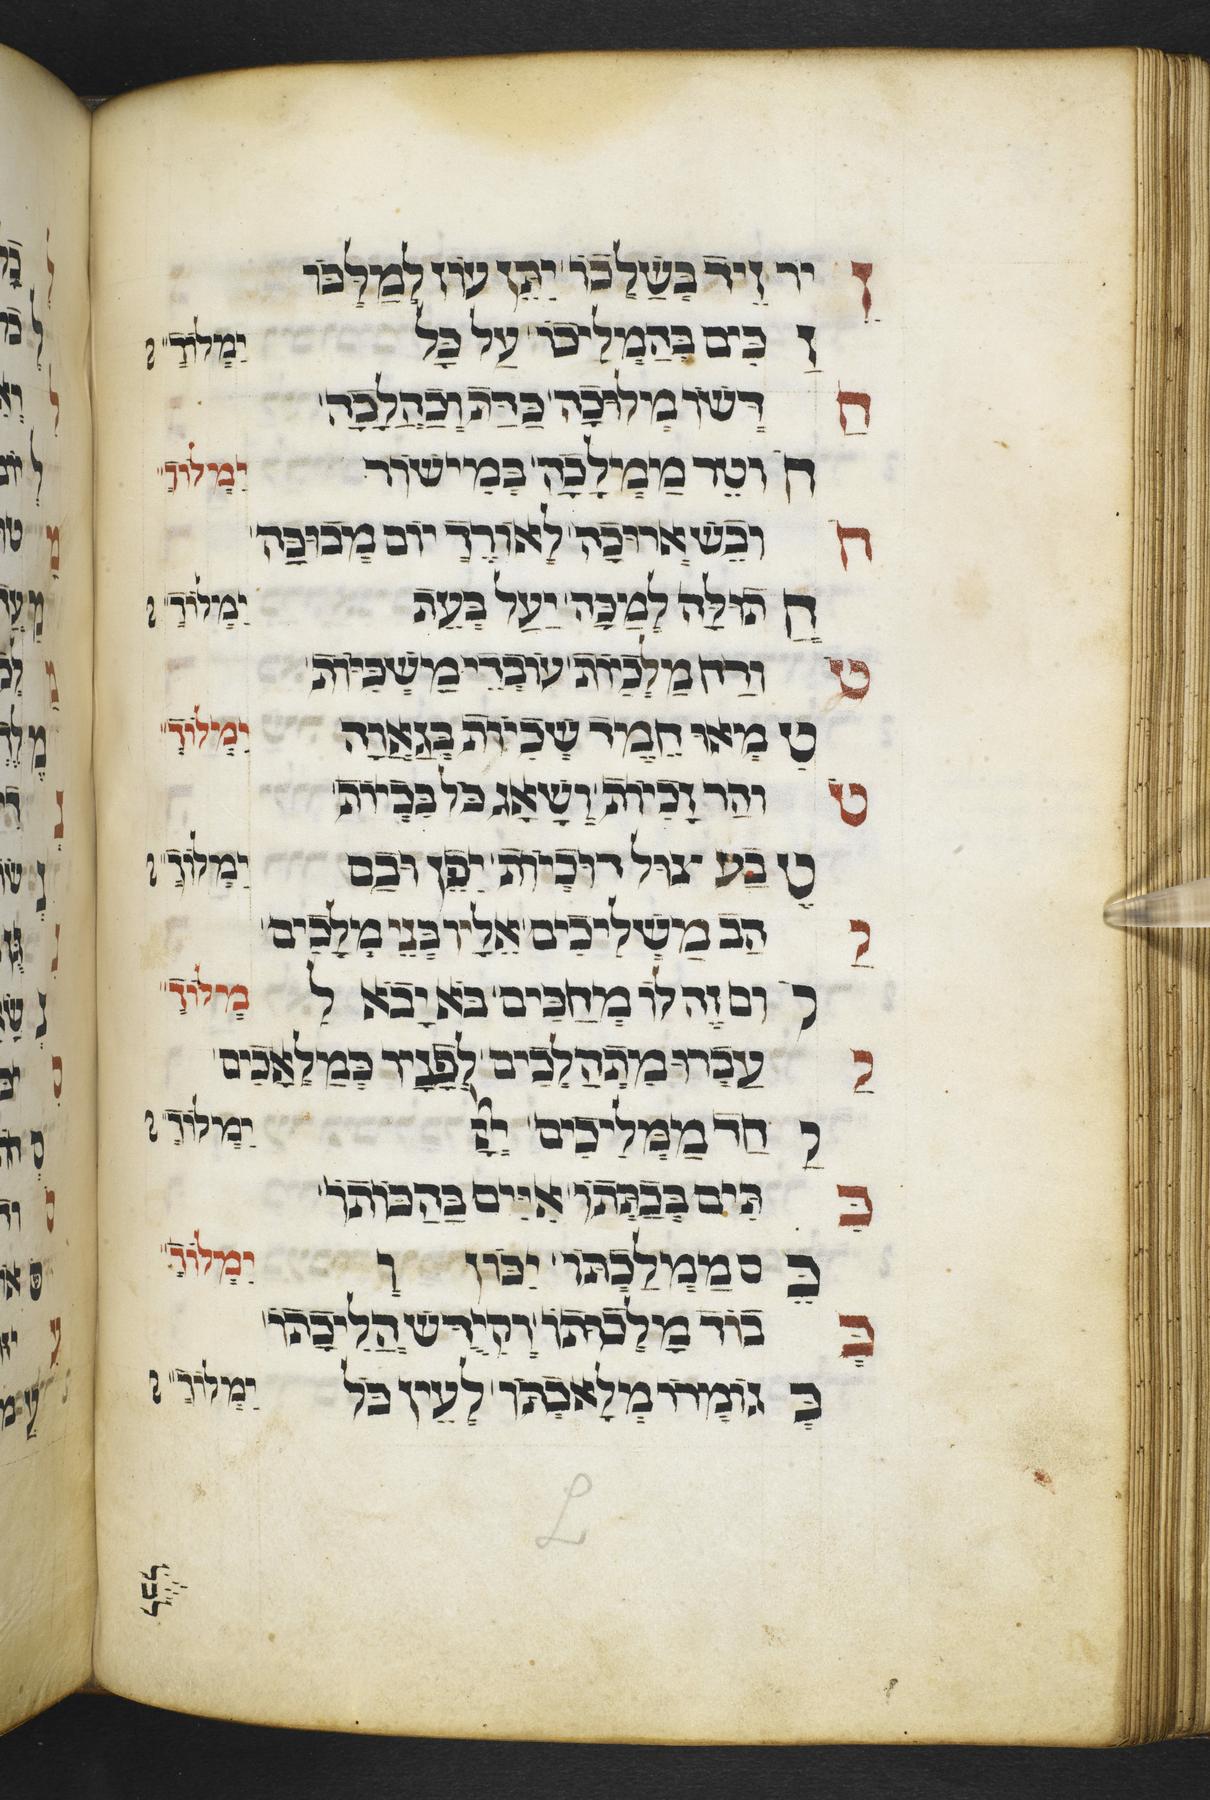 ז יר זיד בשלכו יתן עוז למלכו
ז כים בהמליכו על כל ימלוך
ח דשו מילוכה כדת וכהלכה
ח וטר ממלכה במישור ימלוך
ח ובש ארוכה לאורך יום מבוכה
ח תולה למכה יעל בעת ימלוך
ט ורח מלכיות עובדי משכיות
ט מאו חמיד שכיות בגאוה ימלוך
ט והר זכיות ושאג כל בכיות
ט בע צול דוכיות יפן ובכס ימלוך
י הב משליכים אליו בני מלכים
י ום זה לו מחכים בא יבא ל ימלוך
י עברו מתהלכים לפניו כמלאכים
י חד ממליכים ימלוך
כ תים בכתתו איים בהכותו
כ ס ממלכתו יכון ו ימלוך
כ בוד מלכותו וקידש הליכתו
כ גומרו מלאכתו לעין כל ימלוך